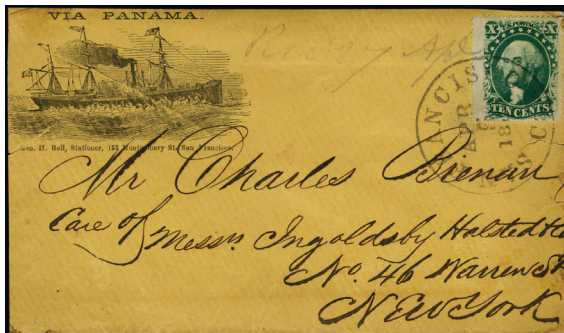 VIA PANAMA.
Geo. H. Bell, Stationer, 153 Montgomery St. San Francisco.
X X
TEN CENTS
SAN FRANCISCO
APR
18
Mr Charles
Care of Messrs Ingoldsby Halsted
No. 46 Warren St
New York